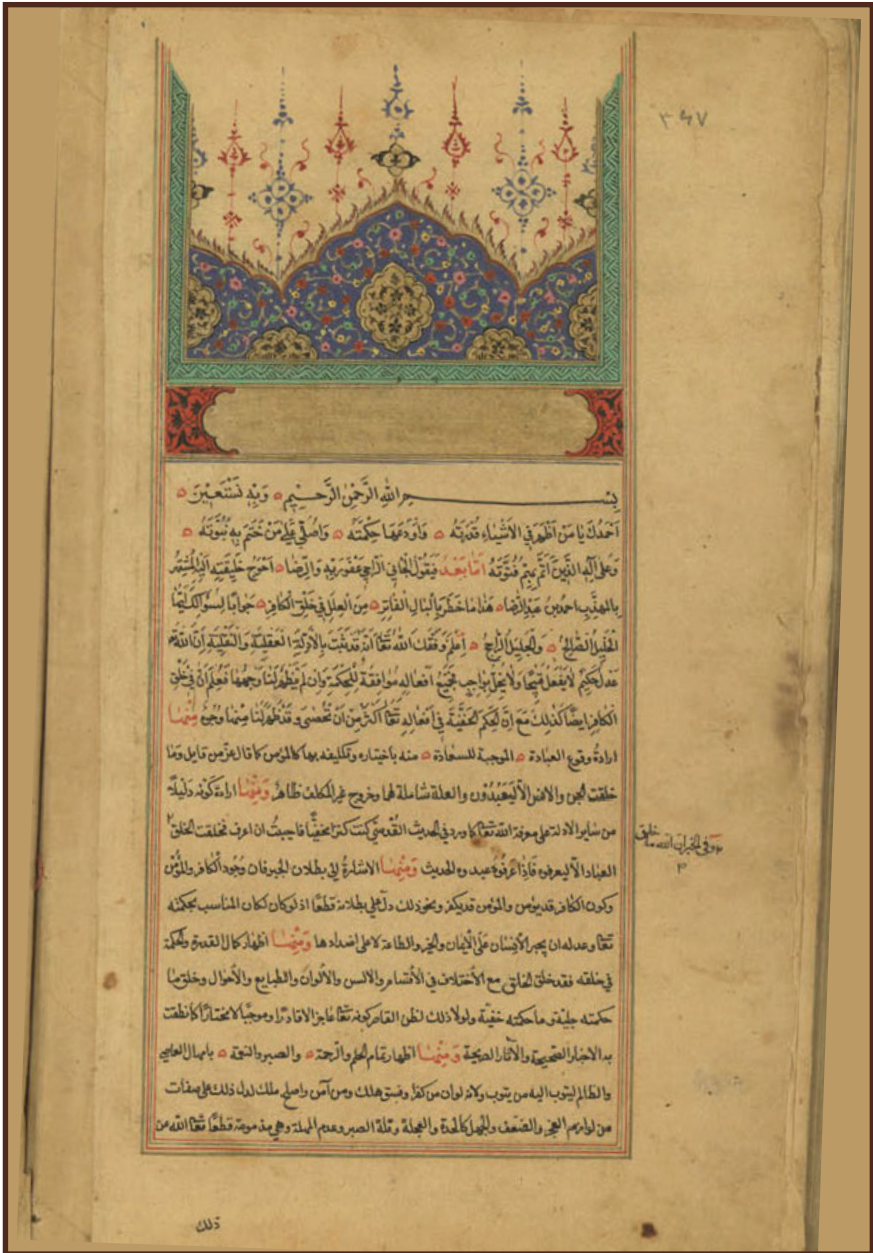 ٣٤٧
بسم الله الرَّحمٰنِ الرَّحـــيمِ وَبِهِ نَسْتَعِيْنَ
اَحْمَدُكَ يَا مَنْ اَظْهَرَ فِي الاَشْيَاءِ قُدْرَتَهُ وَاَوْدَعَهَا حِكْمَتَهُ وَاُصَلِّي عَلَى مَنْ خَتَمَ بِهِ نُبُوَّتَهُ
وَعَلَى آلِهِ الَّذِيْنَ اَتَمَّ بِهِمْ فُتُوَّتَهُ اَمَّا بَعْدُ فَيَقُوْلُ الْجَانِي الرَّاجِي عَفْوَ رَبِّهِ وَالرِّضَا اَحْوَجُ خَلِيْقَتِهِ اِلَيْهِ الْمُشْتَهِرُ
بِالمهذّب احمد بن عَبْد الرّضا هَذَا مَا خَطَرَ بِالْبَالِ الفَاتِرِ مِنَ العِلَلِ فِي خَلْقِ الْكَافِرِ جَوَابًا لِسُؤَالِكَ اَيُّهَا
الْخَلِيْلُ الصَّالِحُ وَالْجَلِيْلُ الرَّاجِحُ اِعْلَمْ وَفَّقَكَ اللّٰهُ تَعَا اَنَّهُ قَدْ ثَبَتَ بِالاَدِلَّةِ العَقْلِيَّةِ وَالنَّقْلِيَّةِ اِنَّ اللّٰهَ
عَدْلٌ حَكِيْمٌ لاَ يَفْعَلُ قَبِيْحًا وَلاَ يُخِلُّ بِوَاجِبٍ فَجَمِيْعُ اَفْعَالِهِ مُوَافِقَةٌ لِلْحِكْمَةِ وَاِنْ لَمْ يَظْهَرْ لَنَا وَجْهُهَا فَعُلِمَ اَنَّ فِي خَلْقِ
الكَافِرِ اَيْضًا كَذٰلِكَ مَعَ اِنَّ الحِكَمَ الخَفِيَّةَ فِي اَفْعَالِهِ تَعَا اَكْثَرُ مِنْ اَنْ تُحْصَى وَقَدْ ظَهَرَ لَنَا مِنْهَا وُجُوْهٌ مِنْهَا
ارادةُ وقوع العبادة الموجبة للسعادة منه باختياره وتكليفه بها كالمؤمن كما قال عزّ من قايل وَمَا
خلقت الجن والانس الاّ لِيَعْبُدُوْن والعلة شاملة لهما وخروج غير المكلف ظاهرٌ وَمِنْهَا ارادة كَوْنِه دَلِيْلاً
من سايرا الادلة على معرفة اللّٰه تَعَا كما ورد في الحديث القُدْسِيّ كنت كنزا مخفيًّا فاحببتُ ان اعرف فخلقت الخلق
العباد الاّ ليعرفوه فَاِذَا عَرَفُوْهُ عبدوه الحديث وَمِنْهَا الاشارةُ اِلى بطلان الجبر فان وُجُوْدَ الْكافر والمُؤْمِنْ
وكون الكافر قد يؤمن والمؤمن قد يكفر ونحو ذلك دلّ على بطلانه قطعًا اذ لو كان لكان المناسب بحكمته
تعَا وعدله ان يجبر الاِنْسَان عَلَى الْاِيْمَان والخير والطاعة لا على اضدادها وَمِنْهَا اظهار كمال القدرة والحكمة
في خلقه فقد خلق الخلق مع الاختلاف في الأقسام والالسن والالوان والطبايع والأحوال وخلق ما
حكمته جلية وما حكمته خفيّة ولولا ذلك لظن القاصر كونه تعَا عاجزا لا قادرًا وموجبًا لا مختارًا كما نطقت
به الاخبار الصحيحة والآثار الصريحة وَمِنْهَا اظهار تمام الحلم والرحمة والصبر والنعمة بامهال العاصي
والظالم ليتوب اليه من يتوب ولانه لو ان من كفر وفسق هلك ومن آمن واصلح ملك لدل ذلك على صفات
من لوازمهم العجز والضعف والجهل كالحدة والعجلة وقلة الصبر وعدم المهلة وهي مذمومة قطعًا تعَا اللّٰه عن
وفي الخبر ان الله ما خلق
ذلك